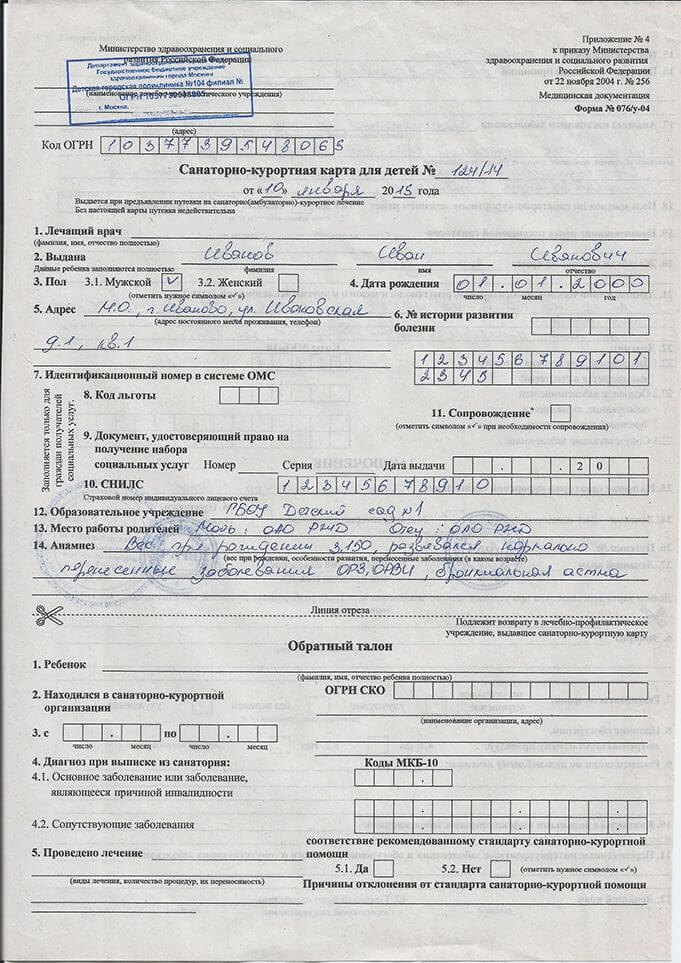 Министерство здравоохранения и социального
развития Российской Федерации
Департамент здравоохранения города Москвы
Государственное бюджетное учреждение
здравоохранения города Москвы
Детская городская поликлиника №104 филиал №
ОГРН
г. Москва,
(наименование учреждения)
(адрес)
Приложение № 4
к приказу Министерства
здравоохранения и социального развития
Российской Федерации
от 22 ноября 2004 г. № 256
Медицинская документация
Форма № 076/у-04
Код ОГРН 1037739548065
Санаторно-курортная карта для детей № 124/14
от «10» января 2015 года
Выдается при предъявлении путевки на санаторно(амбулаторно)-курортное лечение
Без настоящей карты путевка недействительна
1. Лечащий врач
(фамилия, имя, отчество полностью)
2. Выдана Иванов Иван Иванович
Данные ребенка заполняются полностью фамилия имя отчество
3. Пол 3.1. Мужской ✓ 3.2. Женский 4. Дата рождения 01.01.2000
(отметить нужное символом «✓») число месяц год
5. Адрес М.О., г. Иваново, ул. Ивановская
(адрес постоянного места проживания, телефон)
д.1, кв.1
6. № истории развития
болезни
123456789101
2345
7. Идентификационный номер в системе ОМС
Заполняется только для
граждан получателей
социальных услуг.
8. Код льготы
11. Сопровождение*
(отметить символом «✓» при необходимости сопровождения)
9. Документ, удостоверяющий право на
получение набора
социальных услуг Номер Серия Дата выдачи . . 20
10. СНИЛС 12345678910
Страховой номер индивидуального лицевого счета
12. Образовательное учреждение ГБОУ Детский сад №1
13. Место работы родителей Мать: ОАО РЖД Отец: ОАО РЖД
14. Анамнез Вес при рождении 3,150, развивался нормально
(вес при рождении, особенности развития, перенесенные заболевания (в каком возрасте)
перенесенные заболевания ОРЗ, ОРВИ, бронхиальная астма
Линия отреза
Подлежит возврату в лечебно-профилактическое
учреждение, выдавшее санаторно-курортную карту
Обратный талон
1. Ребенок
(фамилия, имя, отчество ребенка полностью)
2. Находился в санаторно-курортной
организации
ОГРН СКО
(наименование организации, адрес)
3. с . по .
число месяц число месяц
4. Диагноз при выписке из санатория: Коды МКБ-10
4.1. Основное заболевание или заболевание,
являющееся причиной инвалидности
4.2. Сопутствующие заболевания
5. Проведено лечение
(виды лечения, количество процедур, их переносимость)
соответствие рекомендованному стандарту санаторно-курортной
помощи
5.1. Да 5.2. Нет (отметить нужное символом «✓»)
Причины отклонения от стандарта санаторно-курортной помощи